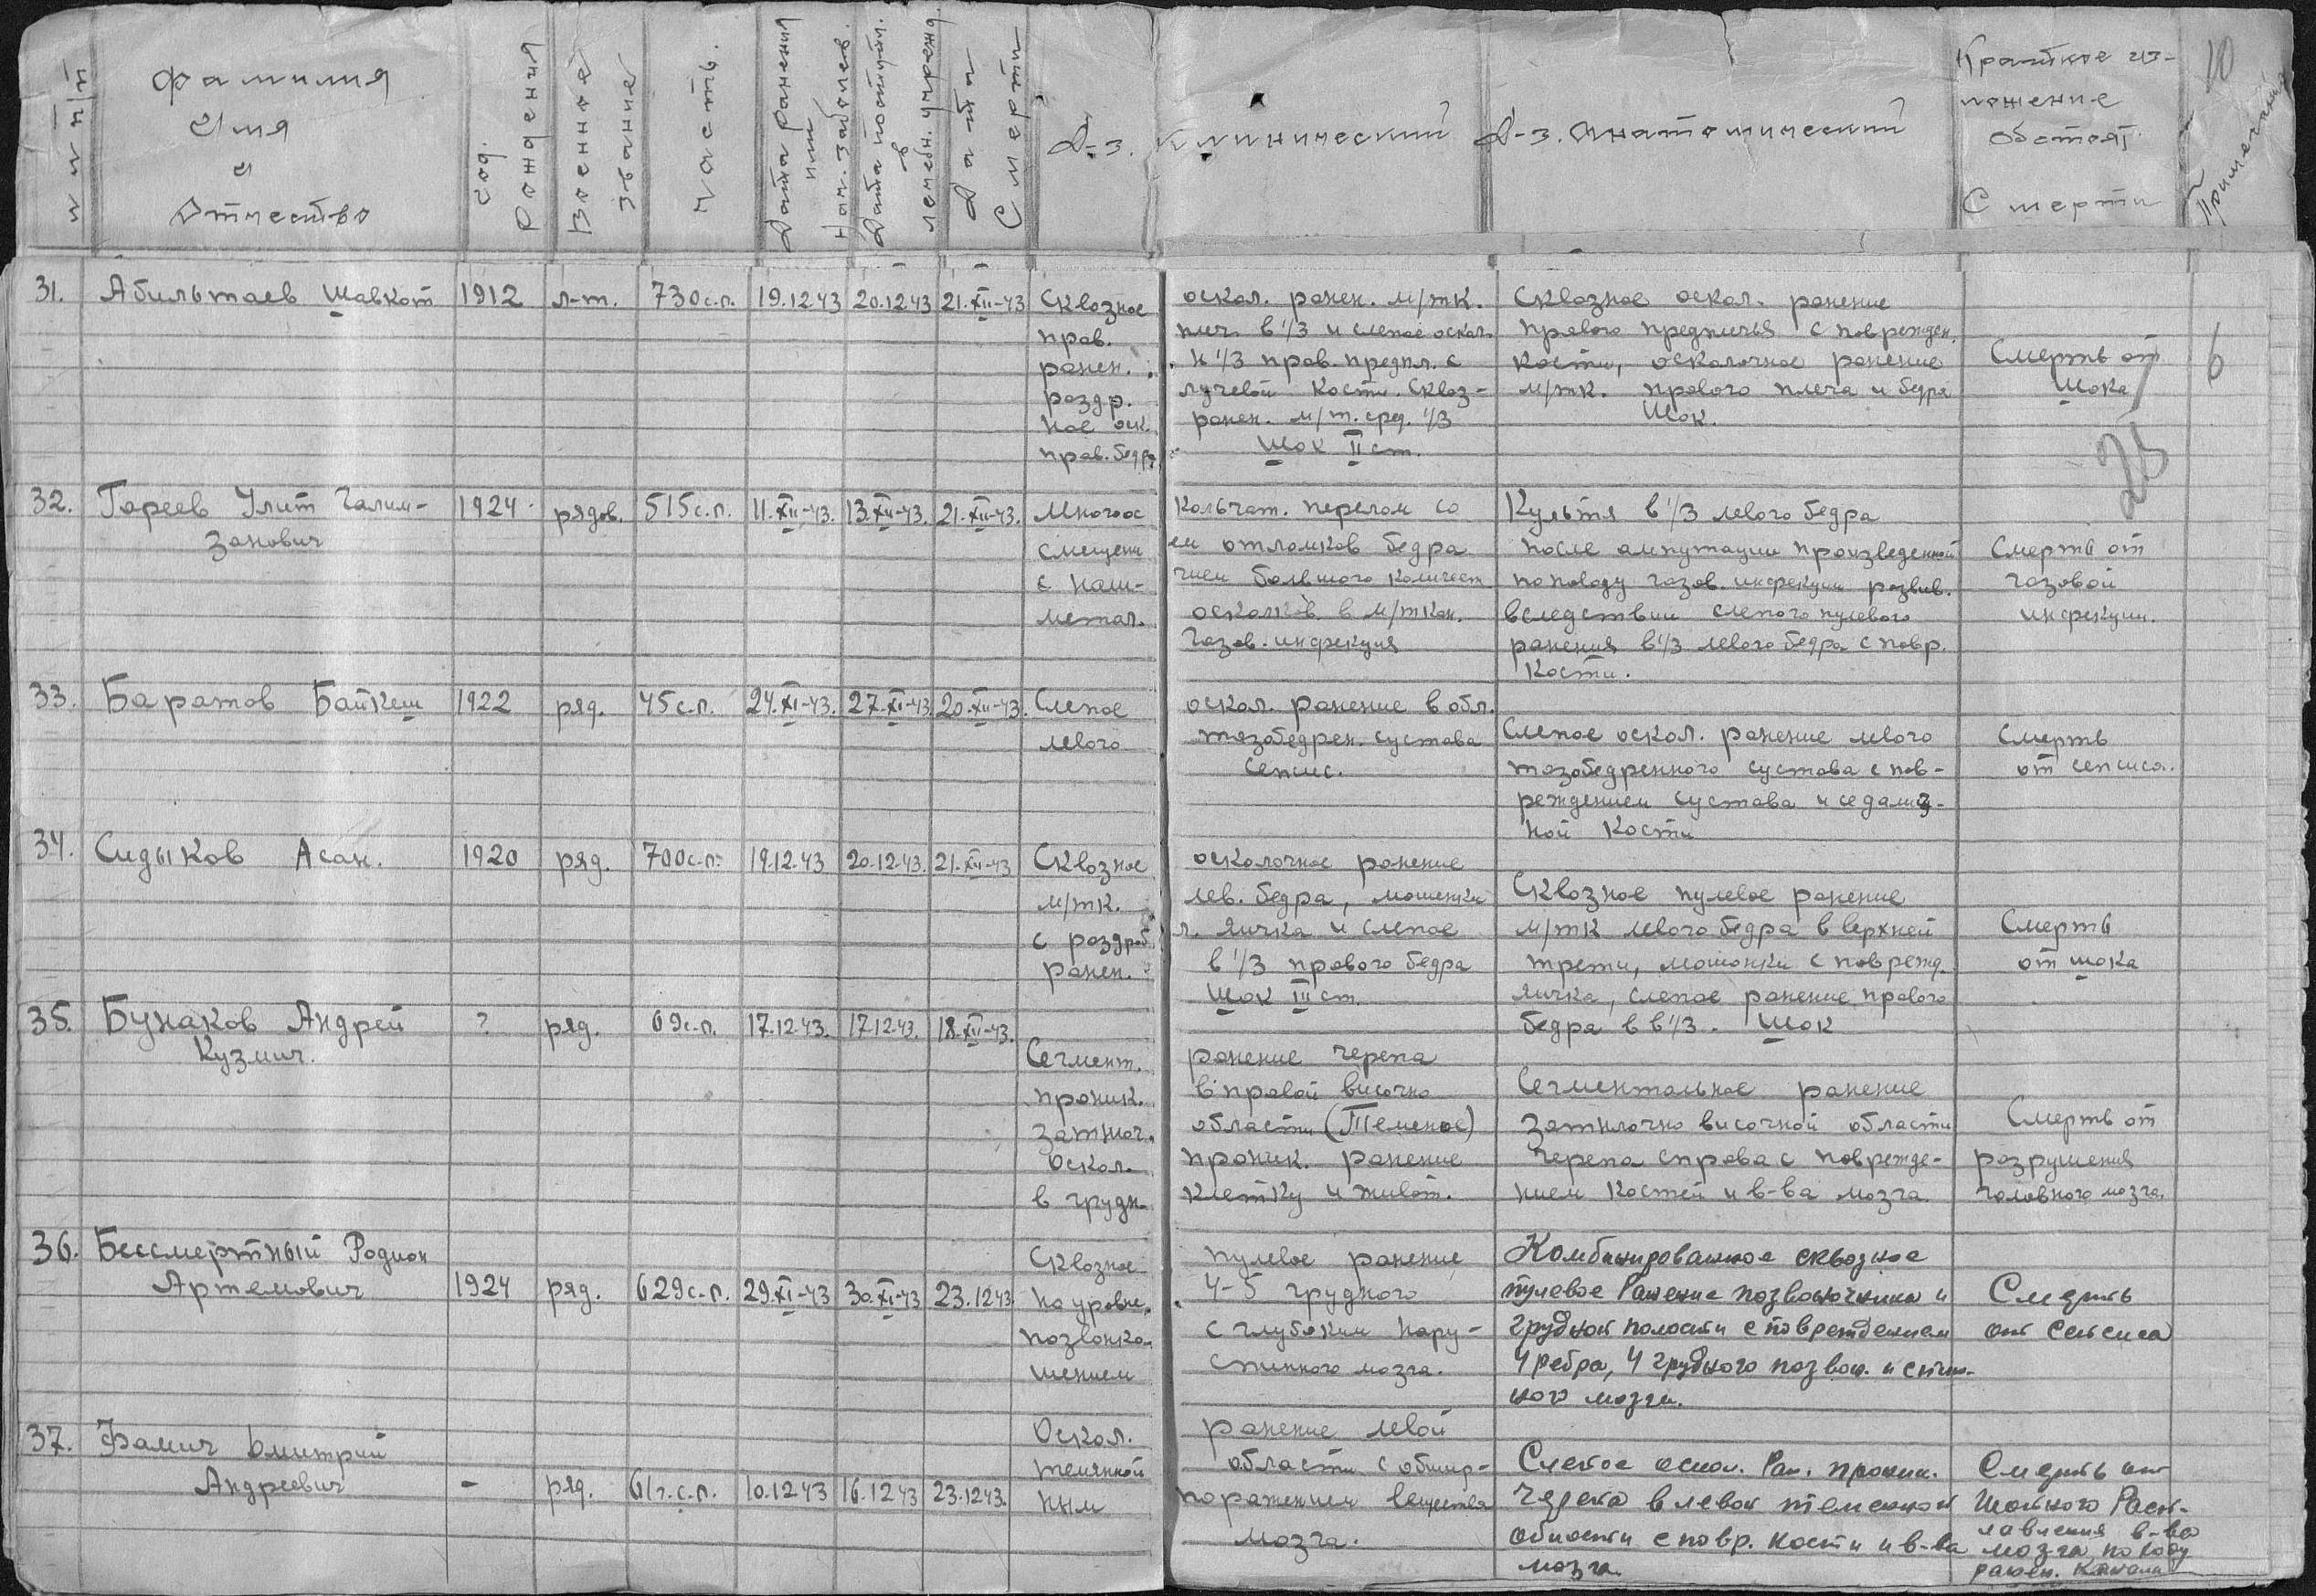 10
№ п/п
Фамилия Имя и Отчество
год. рождения
Военное звание
Часть.
Дата ранения или нач. заболев.
Дата поступл. в лечебн. учрежд.
Дата смерти
Д-з. клинический
Д-з. анатомический
Краткое изложение обстоят. смерти
Примечания
31. Абильтаев Шавкот 1912 л-т. 730 с.п. 19.12.43 20.12.43 21.XII-43 Сквозное оскол. ранен. м/тк. Сквозное оскол. ранение
прав. плеч. в 1/3 и слепое оскол. правого предплечья с поврежден.
ранен. н 1/3 прав. предпл. с кости, осколочное ранение Смерть от 6
раздр. лучевой кости. Сквоз- м/тк. правого плеча и бедра шока
ное оск. ранен. м/т. сред. 1/3 Шок.
прав. бедра Шок II ст.
25
32. Гареев Улит Галим- 1924 рядов. 515 с.п. 11.XII-43. 13.XII-43. 21.XII-43. Многоос кольчат. перелом со Культя в 1/3 левого бедра
занович смещени ем отломков бедра после ампутации произведенной Смерть от
с нали- чием большого количест поповоду газов. инфекции развив. газовой
метал. осколков в м/ткан. вследствии слепого пулевого инфекции.
газов. инфекция ранения в 1/3 левого бедра с повр.
кости.
33. Баратов Байкеш 1922 ряд. 45 с.п. 24.XI-43. 27.XI-43 20.XII-43. Слепое оскол. ранение в обл.
левого тазобедрен. сустава Слепое оскол. ранение левого Смерть
Сепсис. тазобедренного сустава с пов- от сепсиса.
реждением сустава и седалищ-
ной кости
34. Сидыков Асан. 1920 ряд. 700 с.п. 19.12.43 20.12.43. 21.XII-43 Сквозное осколочное ранение
м/тк. лев. бедра, мошенки Сквозное пулевое ранение
с раздроб. л. яичка и слепое м/тк левого бедра в верхней Смерть
ранен. в 1/3 правого бедра трети, мошонки с поврежд. от шока
Шок III ст. яичка, слепое ранение правого
35. Бунаков Андрей ? ряд. 69 с.п. 17.12.43. 17.12.43. 18.XII-43. бедра в в 1/3. Шок
Кузмич. Сегмент. ранение черепа
проник. в правой височно Сегментальное ранение
затылоч. области (Теменное) затылочно височной области Смерть от
Оскол. проник. ранение черепа справа с поврежде- разрушения
в грудн. клетку и живот. нием костей и в-ва мозга. головного мозга.
36. Бессмертный Родион Сквозное пулевое ранение Комбинированное сквозное
Артемович 1924 ряд. 629 с.п. 29.XI-43 30.XI-43 23.12.43 на уровне 4-5 грудного пулевое Ранение позвоночника и Смерть
позвонка с глубоким нару- грудной полости с повреждением от Сепсиса
шением спинного мозга. 4 ребра, 4 грудного позвон. и спин-
ного мозга.
37. Фамич Дмитрий Оскол. ранение левой
теменной области с обшир- Слепое оскол. Ран. проник. Смерть от
Андреевич - ряд. 61 г.с.п. 10.12.43 16.12.43 23.12.43. ным поражением вещества черепа в левой теменной Раст-
мозга. области с повр. кости и в-ва лавления в-ва
мозга. мозга по ходу
ранен. канала